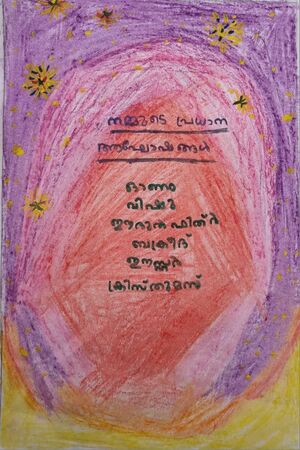 നമ്മുടെ പ്രധാന
ആഘോഷങ്ങൾ
ഓണം
വിഷു
ഈദുൽ ഫിത്ർ
ബക്രീദ്
ഈസ്റ്റർ
ക്രിസ്തുമസ്